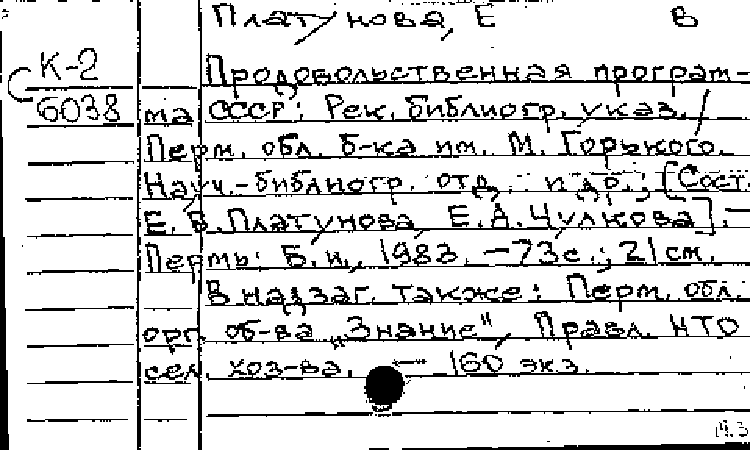 Платунова, Е В
К-2
6038
Продовольственная програм-
ма СССР: Рек. библиогр. указ. /
Перм. обл. б-ка им. М. Горького.
Науч.-библиогр. отд. и др.; [Сост.
Е. В. Платунова, Е. А. Чулкова]. —
Пермь: Б. и., 1983. — 73 с.; 21 см.
В надзаг. также: Перм. обл.
орг. об-ва „Знание", Правл. НТО
сел. хоз-ва. — 160 экз.